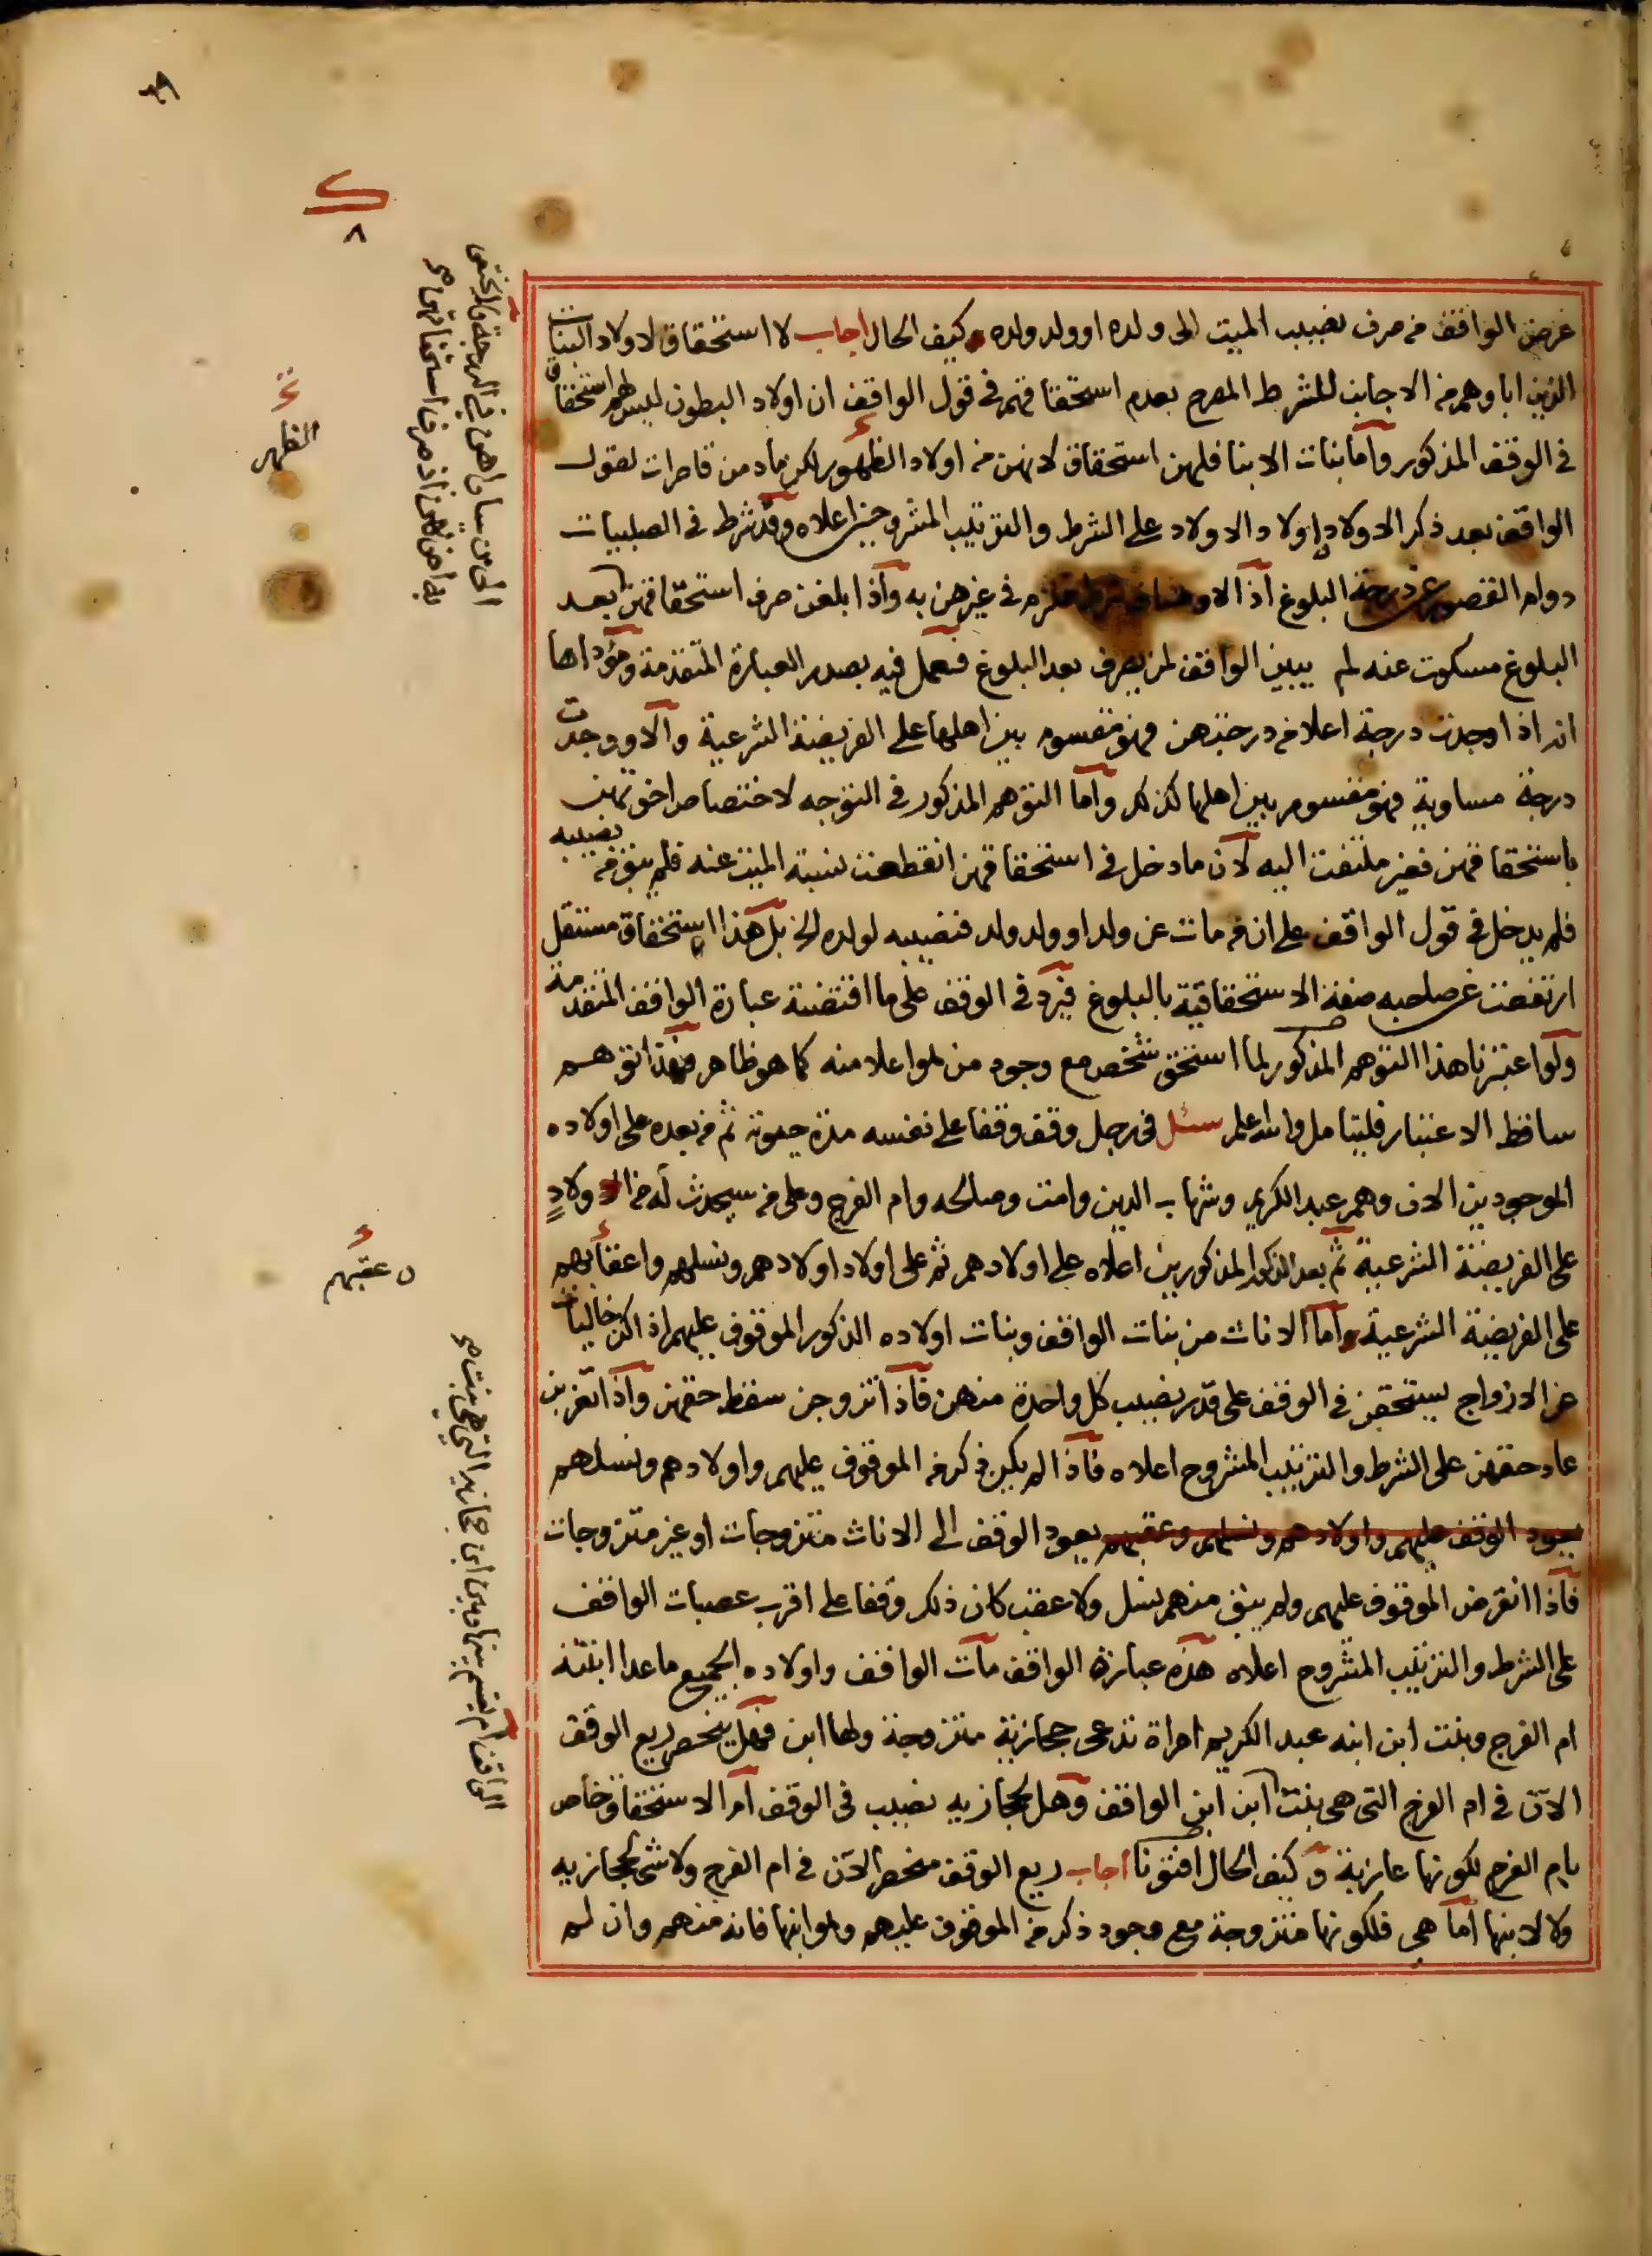 غرض الواقف من صرف نصيب الميت الى ولده او ولد ولده وكيف الحال اجاب لا استحقاق لاولاد البنات
الذين اباوهم من الاجانب للشرط المصرح بعدم استحقاقهم في قول الواقف ان اولاد البطون ليس لهم استحقاق
في الوقف المذكور واما بنات الابنا فلهن استحقاق لانهن من اولاد الظهور لكن ما دمن قاصرات لقول
الواقف بعد ذكر الاولاد واولاد الاولاد على الشرط والترتيب المشروحين اعلاه وقد شرط في الصلبيات
دوام القصور عن درجة البلوغ اذ الاوصاف فلزم في غيرهن به واذا بلغن صرف استحقاقهن بعد
البلوغ مسكوت عنه لم يبين الواقف لمن يصرف بعد البلوغ فنعمل فيه بصدر العبارة المتقدمة ومؤداها
انه اذا وجدت درجة اعلا من درجتهن فهو مقسوم بين اهلها على الفريضة الشرعية والا ووجدت
درجة مساوية فهو مقسوم بين اهلها كذلك واما التوهم المذكور في التوجه لاختصاص اخوتهن
باستحقاقهن فغير ملتفت اليه لان ما دخل في استحقاقهن انقطعت نسبة الميت عنه فلم يبق من نصيبه
فلم يدخل في قول الواقف على ان من مات عن ولد او ولد ولد فنصيبه لولده الخ بل هذا استحقاق مستقل
ارتفعت عن صاحبه صفة الاستحقاقية بالبلوغ فيرد في الوقف على ما اقتضته عبارة الواقف المتقدمة
ولو اعتبرنا هذا التوهم المذكور لما استحق شخص مع وجود من هو اعلا منه كما هو ظاهر فهذا توهم
ساقط الاعتبار فليتامل والله اعلم سئل في رجل وقف وقفا على نفسه مدة حيوته ثم من بعده على اولاده
الموجودين الان وهم عبد الكريم وشهاب الدين وامنت وصالحه وام الفرج وعلى من سيحدث له من الاولاد
على الفريضة الشرعية ثم بعد الذكور المذكورين اعلاه على اولادهم ثم على اولاد اولادهم ونسلهم واعقابهم
على الفريضة الشرعية واما الاناث من بنات الواقف وبنات اولاده الذكور الموقوف عليهم اذا كن خاليات
عن الازواج يستحقن في الوقف على قدر نصيب كل واحدة منهن فاذا تزوجن سقط حقهن واذا تعزبن
عاد حقهن على الشرط والترتيب المشروح اعلاه فاذا لم يكن ذكر من الموقوف عليهم واولادهم ونسلهم
يعود الوقف عليهم واولادهم ونسلهم وعقبهم يعود الوقف الى الاناث متزوجات او غير متزوجات
فاذا انقرض الموقوف عليهم ولم يبق منهم نسل ولا عقب كان ذلك وقفا على اقرب عصبات الواقف
على الشرط والترتيب المشروح اعلاه هذه عبارة الواقف مات الواقف واولاده الجميع ما عدا ابنته
ام الفرج وبنت ابن ابنه عبد الكريم امراة تدعى حجازية متزوجة ولها ابن فهل ينحصر ريع الوقف
الان في ام الفرج التي هي بنت ابن ابن الواقف وهل لحجازيه نصيب في الوقف ام الاستحقاق خاص
بام الفرج لكونها عازبة وكيف الحال افتونا اجاب ريع الوقف منحصر الان في ام الفرج ولا شي لحجازيه
ولا لابنها اما هي فلكونها متزوجة مع وجود ذكر من الموقوف عليهم وهو ابنها فانه منهم وان لم
٨
الظهر
وعقبهم
الواقف ام يقسم بينها وبين ابن حجازيه التي هي بنت صح